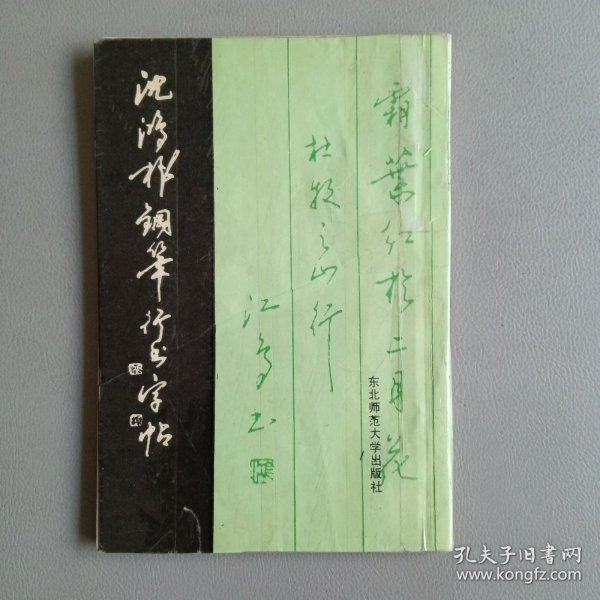 沈鸿根鋼筆行书字帖
霜葉红於二月花
杜牧之山行
江鸟书
东北师范大学出版社
孔夫子旧书网
www.kongfz.com